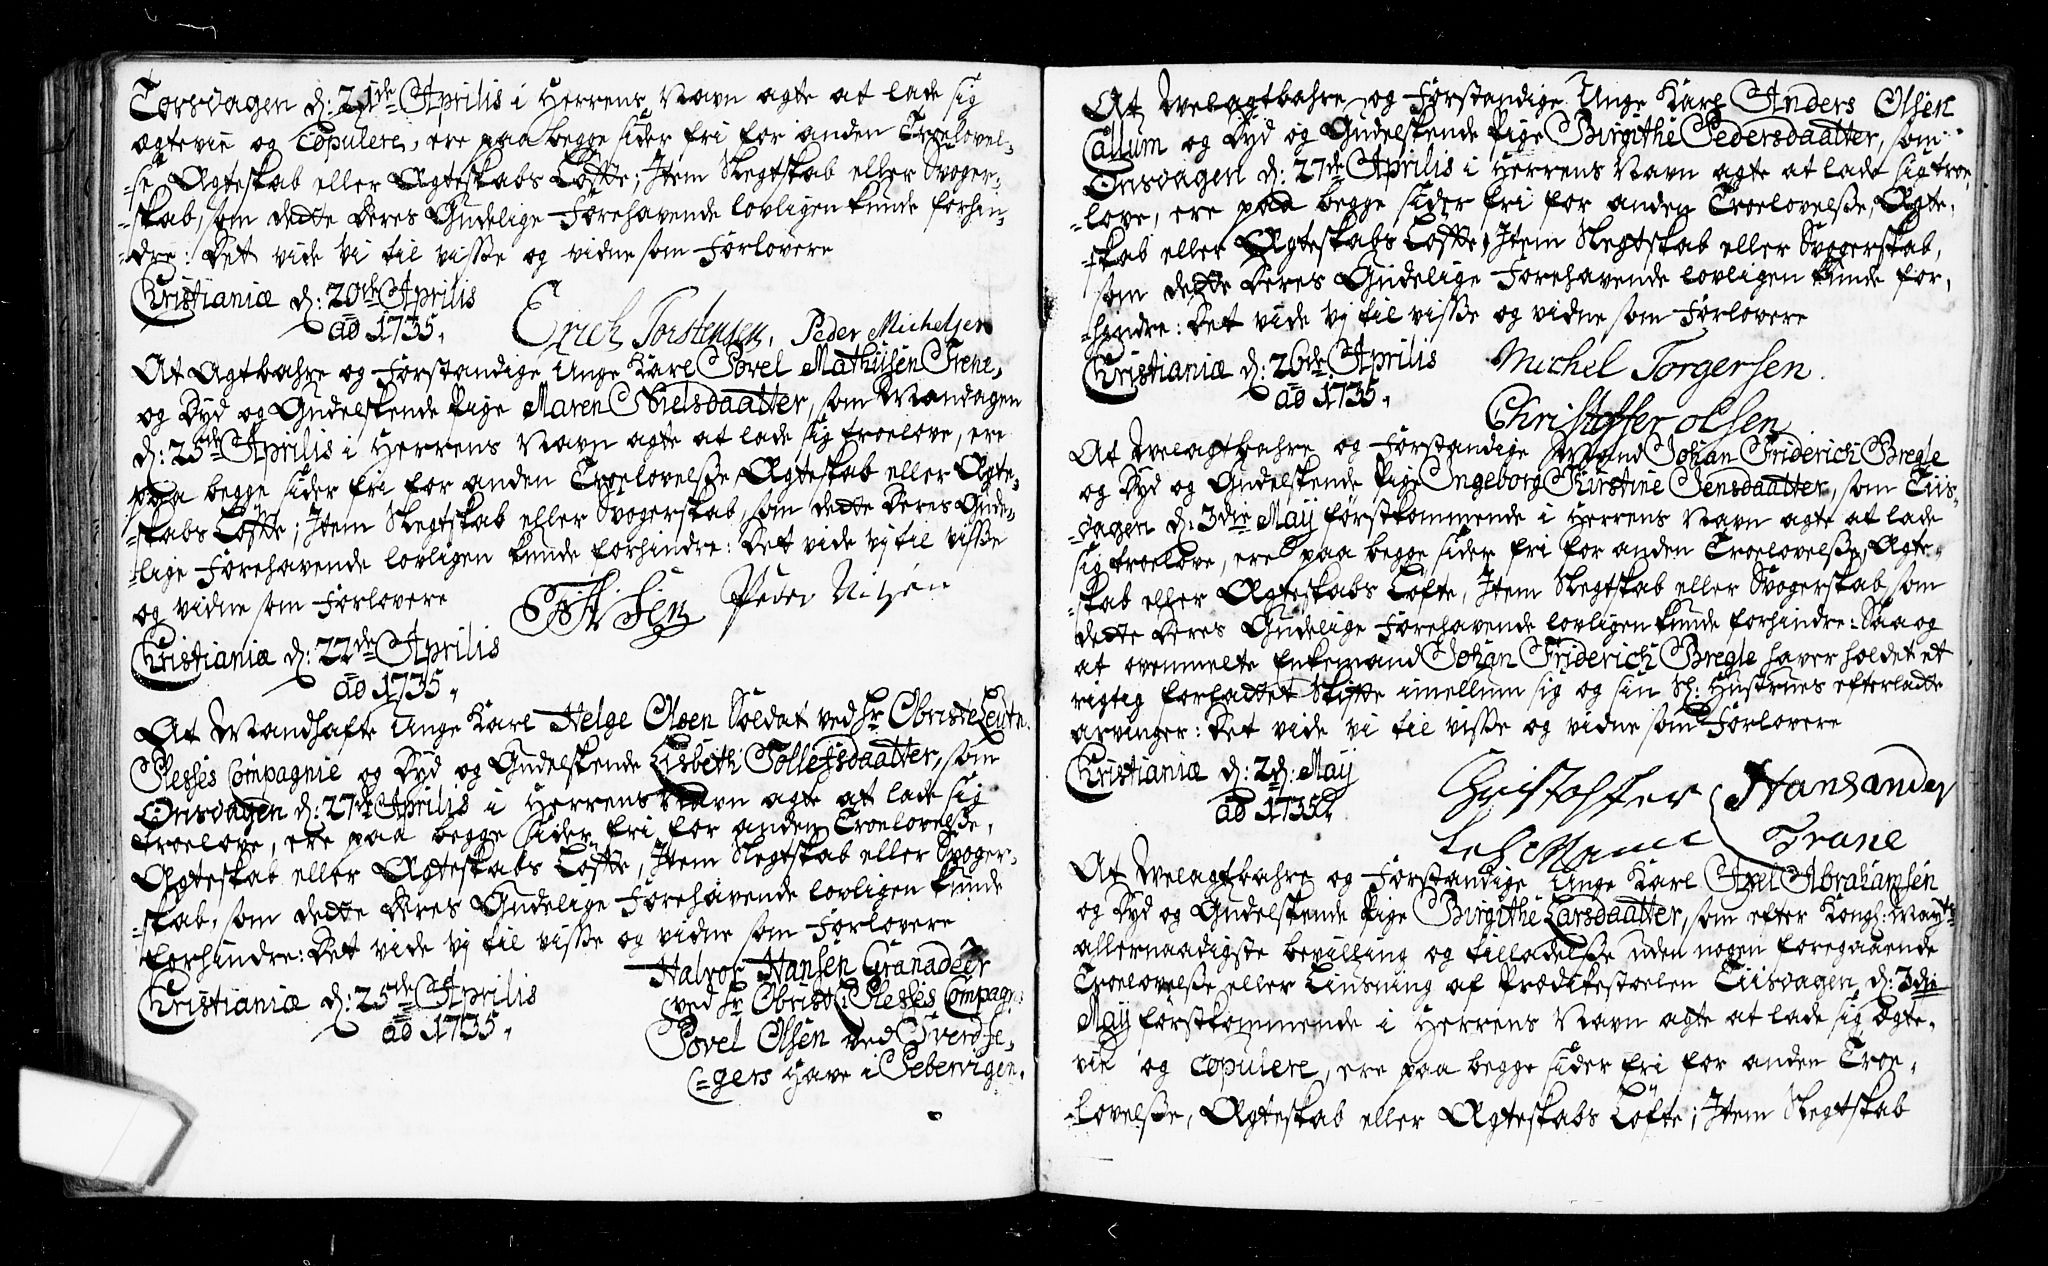 Torsdagen d: 21de Aprilis i Herrens Navn agte at lade sig
ægtevie og copulere, ere paa begge sider fri for anden Troelovel-
-se, Ægteskab eller Ægteskabs Løffte; Item Slegtskab eller Svoger-
-skab, som dette deres Gudelige Forehavende lovligen kunde forhin-
-dre: Det vide vi til visse og vidne som Forlovere
Christianiæ d: 20de Aprilis
ao 1735.
Erich Torstensen, Peder Michelsen
At Agtbahre og Forstandige Unge Karl Povel Mathiisen Trene,
og Dyd og Gudelskende Pige Maren Nielsdaatter, som Mandagen
d: 25de Aprilis i Herrens Navn agte at lade sig troelove, ere
paa begge sider fri for anden Troelovelsse, Ægteskab eller Ægte-
-skabs Løffte; Item Slegtskab eller Svogerskab, som dette deres Gude-
-lige Forehavende lovligen kunde forhindre: Det vide vj til visse
og vidne som Forlovere
Peder Nilsen
Christianiæ d: 22de Aprilis
ao 1735.
At Mandhafte Unge Karl Helge Olsen Soldat ved Hr Obriste Leutn.
Plesses Compagnie og Dyd og Gudelskende Lisbeth Tollefsdaatter, som
Onsdagen d: 27de Aprilis i Herrens Navn agte at lade sig
troelove, ere paa begge sider fri for anden Troelovelsse,
Ægteskab eller Ægteskabs Løffte, Item Slegtskab eller Svoger-
-skab, som dette deres Gudelige Forehavende lovligen kunde
forhindre: Det vide vj til visse og vidne som Forlovere
Halvor Hansen Granadeer
Christianiæ d: 25de Aprilis
ved Hr Obrist L: Plesses Compagn:
ao 1735.
Povel Olsen ved Sverdfe-
-gers Have i Pebervigen.
At Welagtbahre og Forstandige Unge Karl Anders Olsen
Callum og Dyd og Gudelskende Pige Birgithe Pedersdaatter, som
Onsdagen d: 27de Aprilis i Herrens Navn agte at lade sig troe,
-love, ere paa begge sider fri for anden Troelovelsse, Ægte,
-skab eller Ægteskabs Løffte, Item Slegtskab eller Svogerskab,
som dette deres Gudelige Forehavende lovligen kunde for,
-hindre: Det vide vj til visse og vidne som Forlovere
Christianiæ d: 26de Aprilis
Michel Torgersen.
ao 1735.
Christoffer olsen
At Welagtbahre og Forstandige Mand Johan Friderich Bregle
og Dyd og Gudelskende Pige Ingeborg Kirstine Jensdaatter, som Tiis-
-dagen d: 3die Maij førstkommende i Herrens Navn agte at lade
sig troelove, ere paa begge sider fri for anden Troelovelsse, Ægte-
-skab eller Ægteskabs Løfte, Item Slegtskab eller Svogerskab, som
dette deres Gudelige Forehavende lovligen kunde forhindre: Saa og
at ovenmelte Enkemand Johan Friderich Bregle haver holdet et
rigtig forfattet Skifte imellum sig og sin Sl: Hustrues efterladte
arvinger: Det vide vi til visse og vidne som Forlovere
Christianiæ d: 2d: Maij
ao 1735.
Christoffer Hans ander
Trane
At Welagtbahre og Forstandige Unge Karl Axel Abrahamsen
og Dyd og Gudelskende Pige Birgithe Larsdaatter, som efter Kongl: May:ts
allernaadigste bevilling og tilladelsse uden nogen foregaaende
Troelovelsse eller Liusning af Prædikestoelen Tiisdagen d: 3die
Maij førstkommende i Herrens Navn agte at lade sig Ægte-
vie og copulere, ere paa begge sider fri for anden Troe-
-lovelsse, Ægteskab eller Ægteskabs Løfte; Item Slegtskab